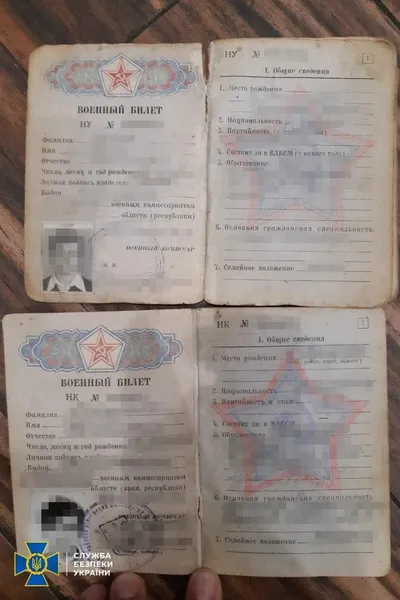 ВОЕННЫЙ БИЛЕТ
НУ №
Фамилия
Имя
Отчество
Число, месяц и год рождения
Личная подпись владельца
Выдан
военным комиссариатом
области (республики)
ВОЕННЫЙ КОМИССАР
М. П.
НУ №
1
I. Общие сведения
1. Место рождения
2. Национальность
3. Партийность
4. Состоит ли в ВЛКСМ
5. Образование
6. Основная гражданская специальность
7. Семейное положение
ВОЕННЫЙ БИЛЕТ
НК №
Фамилия
Имя
Отчество
Число, месяц и год рождения
Личная подпись
Выдан
военным комиссариатом
области (края, республики)
ВОЕННЫЙ КОМИССАР
НК №
1
I. Общие сведения
1. Место рождения
2. Национальность
3. Партийность и стаж
4. Состоит ли в ВЛКСМ
5.
6. Основная гражданская специальность
7. Семейное положение
СЛУЖБА
БЕЗПЕКИ
УКРАЇНИ